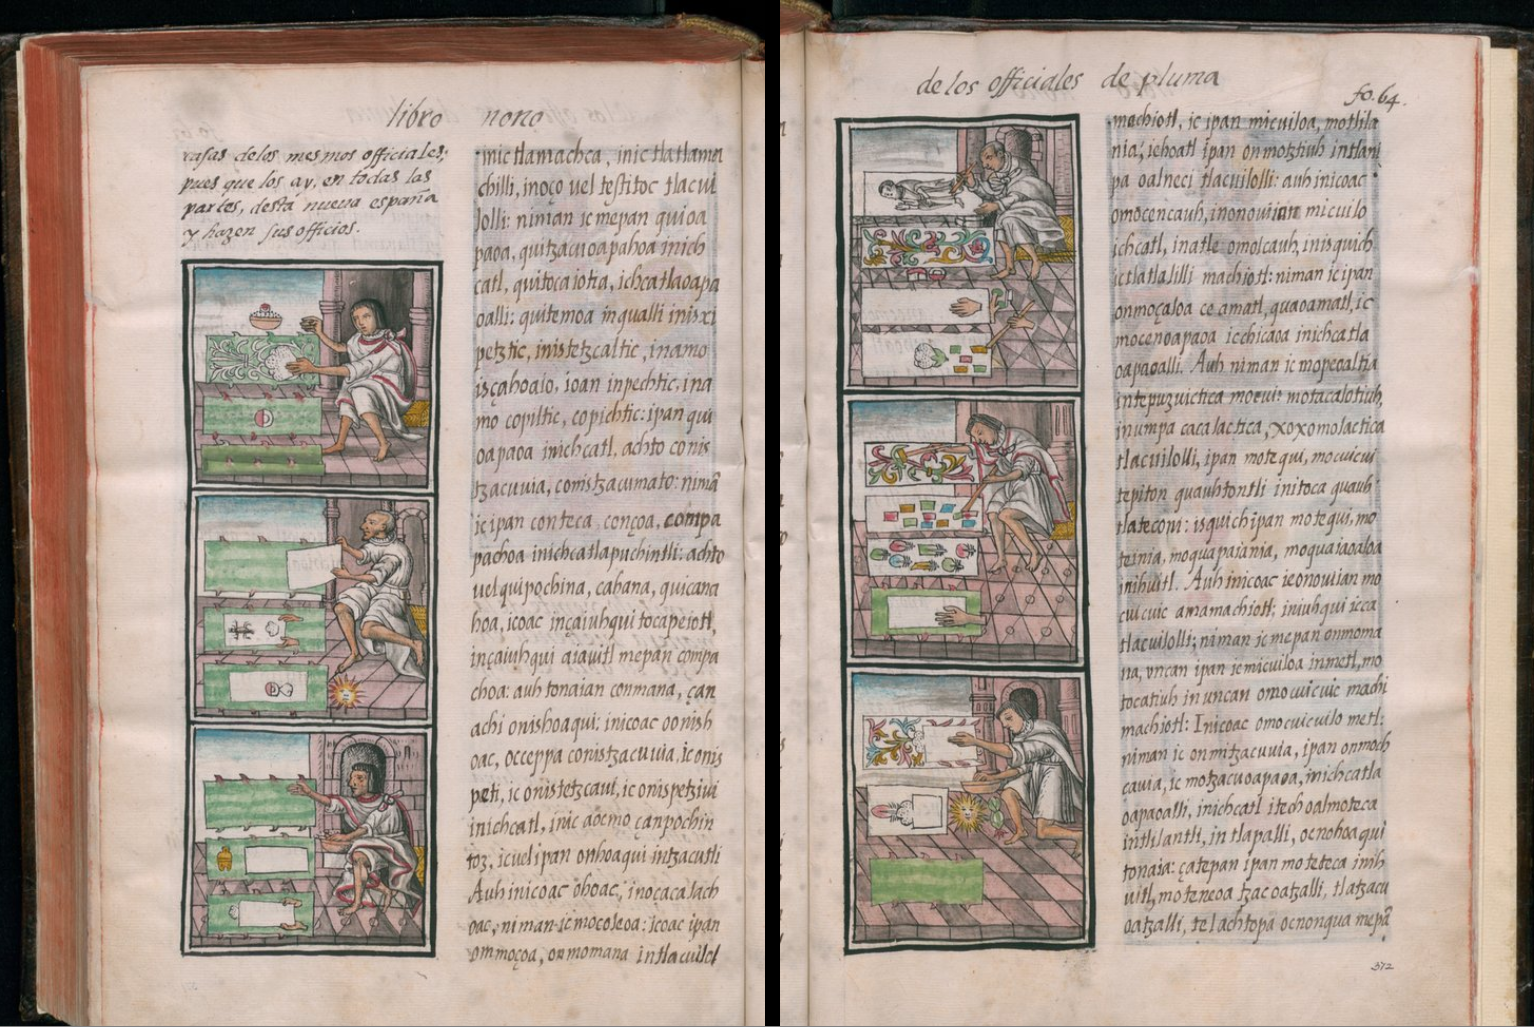 libro nono
rasas delos mesmos officiales;
pues que los ay, en todas las
partes, desta nueua españa
y hazen sus officios.
mictlamachca, inic tlatlama
chilli, inoço uel testitoc tlacui
lolli: niman ic mepan quioa
paoa, quitzacuoapahoa inich
catl, quitocaiotia, ichcatlaoapa
oalli: quitemoa in qualli inisxi
petztic, inistetzcaltic, inamo
isçahoaio, ioan inpechtic, ina
mo copiltic, copichtic: ipan qui
oapaoa inichcatl, achto conis
tzacuuia, comistzacumato: nimã
ic ipan conteca, conçoa, compa
pachoa inichcatlapuchintli: achto
uel quipochina, cahana, quicana
hoa, icoac inçaiuhqui tocapeiotl,
inçaiuhqui aiauitl mepan compa
choa: auh tonaian conmana, çan
achi onishoaqui: inicoac oonish
oac, occeppa conistzacuuia, ic onis
peti, ic onistetzcaui, ic onispetziui
inichcatl, inic aocmo çan pochin
toz, ic uel ipan onhoaqui intzacutli
Auh inicoac ohoac, inoçacalach
oac, niman ic mocoleoa: icoac ipan
ommoçoa, onmomana intlacuilol
de los officiales de pluma
fo. 64.
machiotl, ic ipan micuiloa, motlila
nia, iehoatl ipan onmotztiuh intlani
pa oalneci tlacuilolli: auh inicoac
omocencauh, inonouiian micuilo
ichcatl, inatle omolcauh, inisquich
ictlatlalilli machiotl: niman ic ipan
onmoçaloa ce amatl, quaoamatl, ic
mocenoapaoa icchicaoa inichcatla
oapaoalli. Auh niman ic mopeoaltia
intepuzuictica mocui: motacalotiuh,
inumpa cacalactica, xoxomolactica
tlacuilolli, ipan motequi, mocuicui
tepiton quauhtontli initoca quauh
tlateconi: isquich ipan motequi, mo
teinia, moquapaiania, moquaiaoaloa
inihuitl. Auh inicoac ieonouiian mo
cuicuic amamachiotl; iniuhqui icca
tlacuilolli; niman ic mepan onmoma
na, uncan ipan ic micuiloa inmetl, mo
tocatiuh in uncan omocuicuic machi
machiotl: Inicoac omocuicuilo metl:
niman ic on mitzacuuia, ipan onmoch
cauia, ic motzacuoapaoa, inichcatla
oapaoalli, inichcatl itech oalmoteca
intlilantli, in tlapalli, ocnohoaqui
tonaia: çatepan ipan moteteca inih
uitl, moteneoa tzacoatzalli, tlatzacu
oatzalli, tel achtopa ocnonqua mepã
372